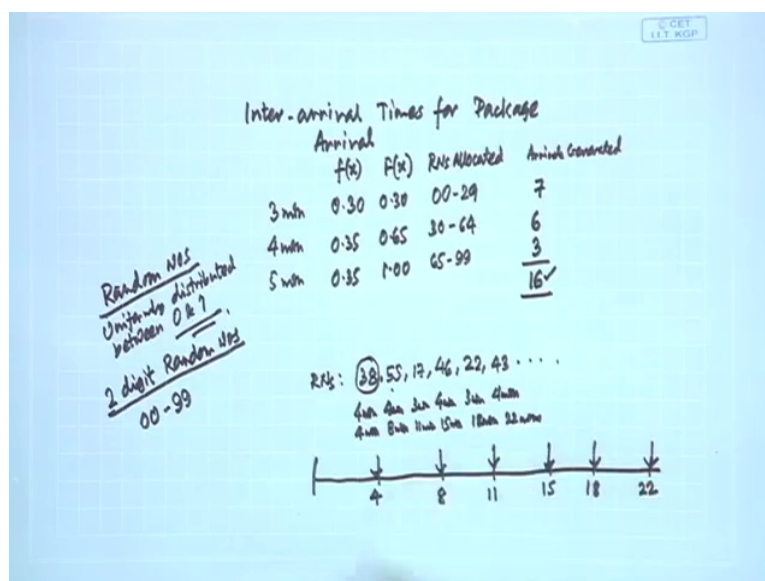 © CET
I.I.T. KGP
Inter-arrival Times for Package
Arrival
f(x) F(x) RNs Allocated Arrivals Generated
3 min 0.30 0.30 00-29 7
4 min 0.35 0.65 30-64 6
5 min 0.35 1.00 65-99 3
16 ✓
Random NOS
Uniformly distributed
between 0 & 1.
2 digit Random NOS
00-99
RNs: 38, 55, 17, 46, 22, 43 ....
4min 4min 3min 4min 3min 4min
4min 8min 11min 15min 18min 22mins
4 8 11 15 18 22